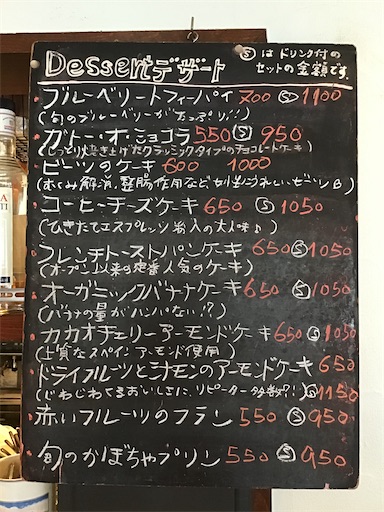 Dessertデザート
Ⓢはドリンク付の
セットの金額です。
ブルーベリートフィーパイ 700 Ⓢ 1100
(旬のブルーベリーがたっぷり!!)
ガトー・オ・ショコラ 550 Ⓢ 950
(しっとり焼き上げたクラシックタイプのチョコレートケーキ)
ビーツのケーキ 600 1000
(むくみ解消、整腸作用など女性にうれしいビーツ)
コーヒーチーズケーキ 650 Ⓢ 1050
(ひきたてエスプレッソ豆入の大人味♪)
フレンチトーストパンケーキ 650 Ⓢ 1050
(オープン以来の定番人気のケーキ)
オーガニックバナナケーキ 650 Ⓢ 1050
(バナナの量がハンパない!?)
カカオチェリーアーモンドケーキ 650 Ⓢ 1050
(上質なスペインアーモンド使用)
ドライフルーツとシナモンのアーモンドケーキ 650
(じわじわくるおいしさに、リピーター多数?!) Ⓢ 1150
赤いフルーツのフラン 550 Ⓢ 950
旬のかぼちゃプリン 550 Ⓢ 950